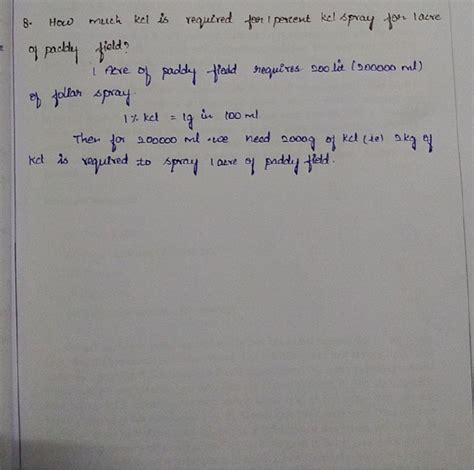 8. How much kcl is required for 1 percent kcl spray for 1 acre
of paddy field?
1 Acre of paddy field requires 200 lit (200000 ml)
of foliar spray.
1% kcl = 1g in 100 ml
Then for 200000 ml we need 2000g of kcl (ie) 2kg of
kcl is required to spray 1 acre of paddy field.